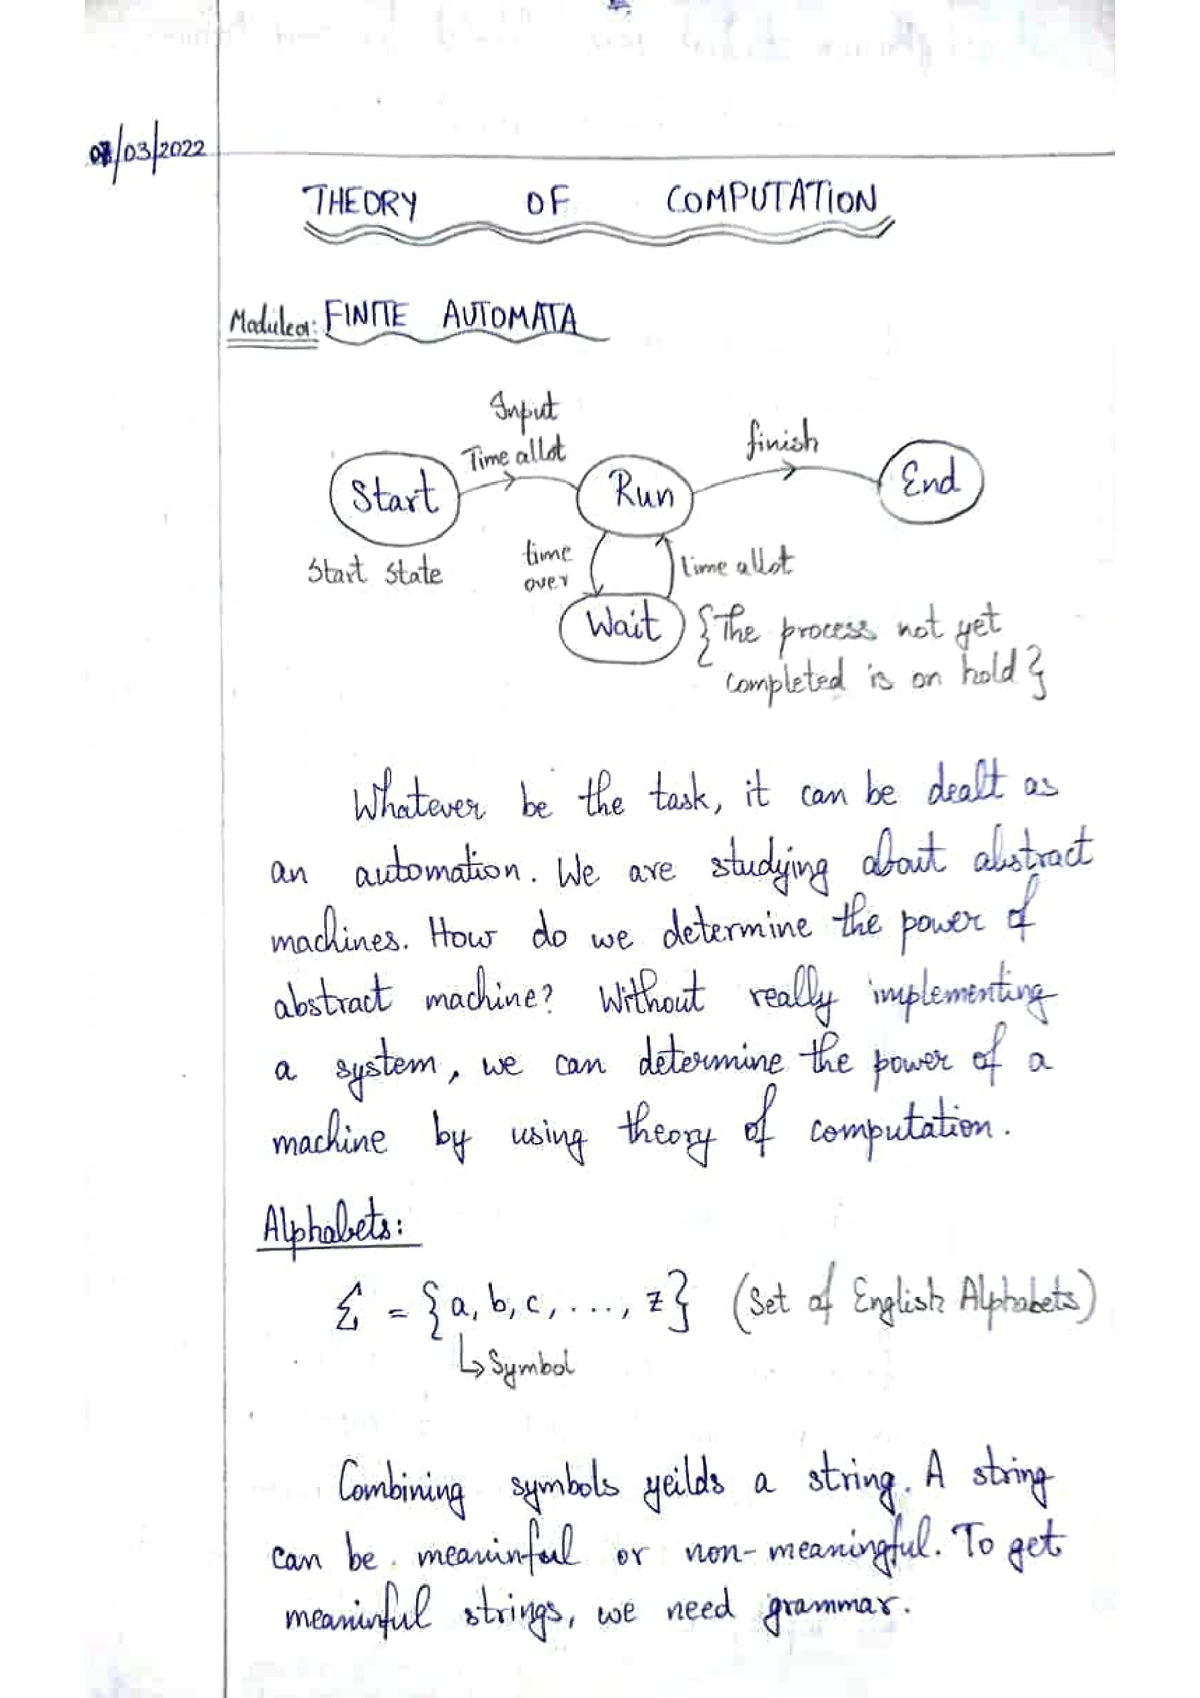 /03/2022
THEORY OF COMPUTATION
Module 01: FINITE AUTOMATA
Input
Time allot
finish
Start
Run
End
Start State
time
over
time allot
Wait
{The process not yet
completed is on hold}
Whatever be the task, it can be dealt as
an automation. We are studying about abstract
machines. How do we determine the power of
abstract machine? Without really implementing
a system, we can determine the power of a
machine by using theory of computation.
Alphabets:
Σ = {a, b, c, ..., z} (Set of English Alphabets)
↳ Symbol
Combining symbols yeilds a string. A string
can be meaninful or non-meaningful. To get
meaninful strings, we need grammar.